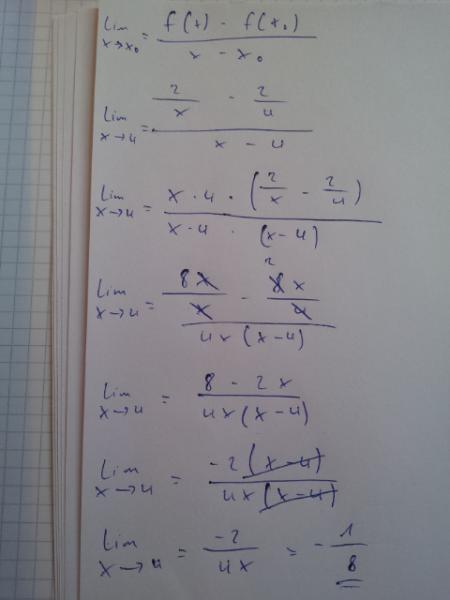 lim x→x₀ = (f(x) - f(x₀)) / (x - x₀)
lim x→4 = (2/x - 2/4) / (x - 4)
lim x→4 = (x · 4 · (2/x - 2/4)) / (x · 4 · (x - 4))
lim x→4 = (8x/x - 8x/4) / (4x (x - 4)) 2
lim x→4 = (8 - 2x) / (4x (x - 4))
lim x→4 = (-2 (x - 4)) / (4x (x - 4))
lim x→4 = -2 / 4x = - 1/8